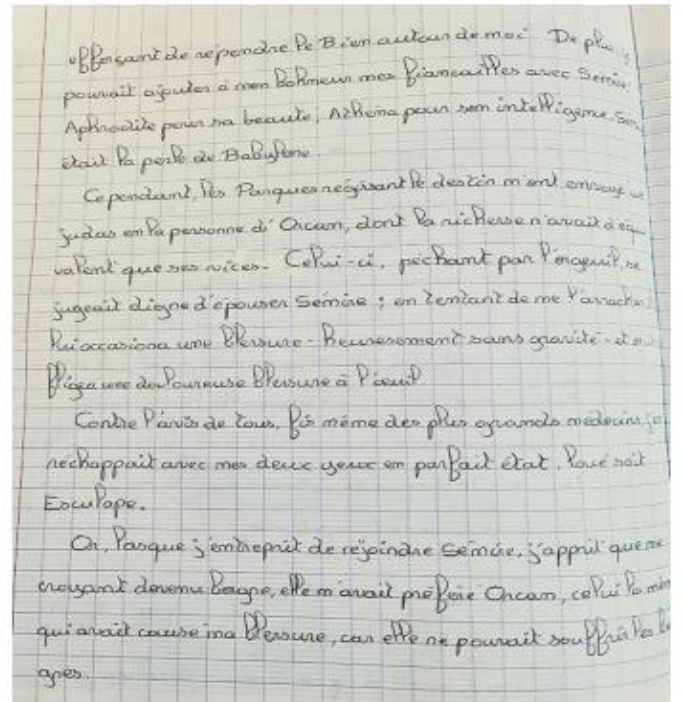 efforçant de rependre le Bien autour de moi. De plus,
pouvait ajouter à mon bohneur mes fiancailles avec Semire
Aphrodite pour sa beauté, Athena pour son intelligence,
était la perle de Babylone.
Cependant, les Parques regisant le destin m'ont envoyé
judas en la personne d'Orcan, dont la richesse n'avait d'équi
valent que ses vices. Celui-ci, pechant par l'orgeuil, se
jugeait digne d'épouser Semire ; en tentant de me l'arracher
lui occasiona une blessure - heuresement sans gravité - et
fligea une douloureuse blessure à l'oeuil.
Contre l'avis de tous, même des plus grands médecins,
rechappait avec mes deux yeux en parfait état, loué soit
Esculape.
Or, lorsque j'entreprit de rejoindre Semire, j'apprit que me
croyant devenu borgne, elle m'avait préféré Orcan, celui là même
qui avait causé ma blessure, car elle ne pouvait souffrir les bo
gnes.